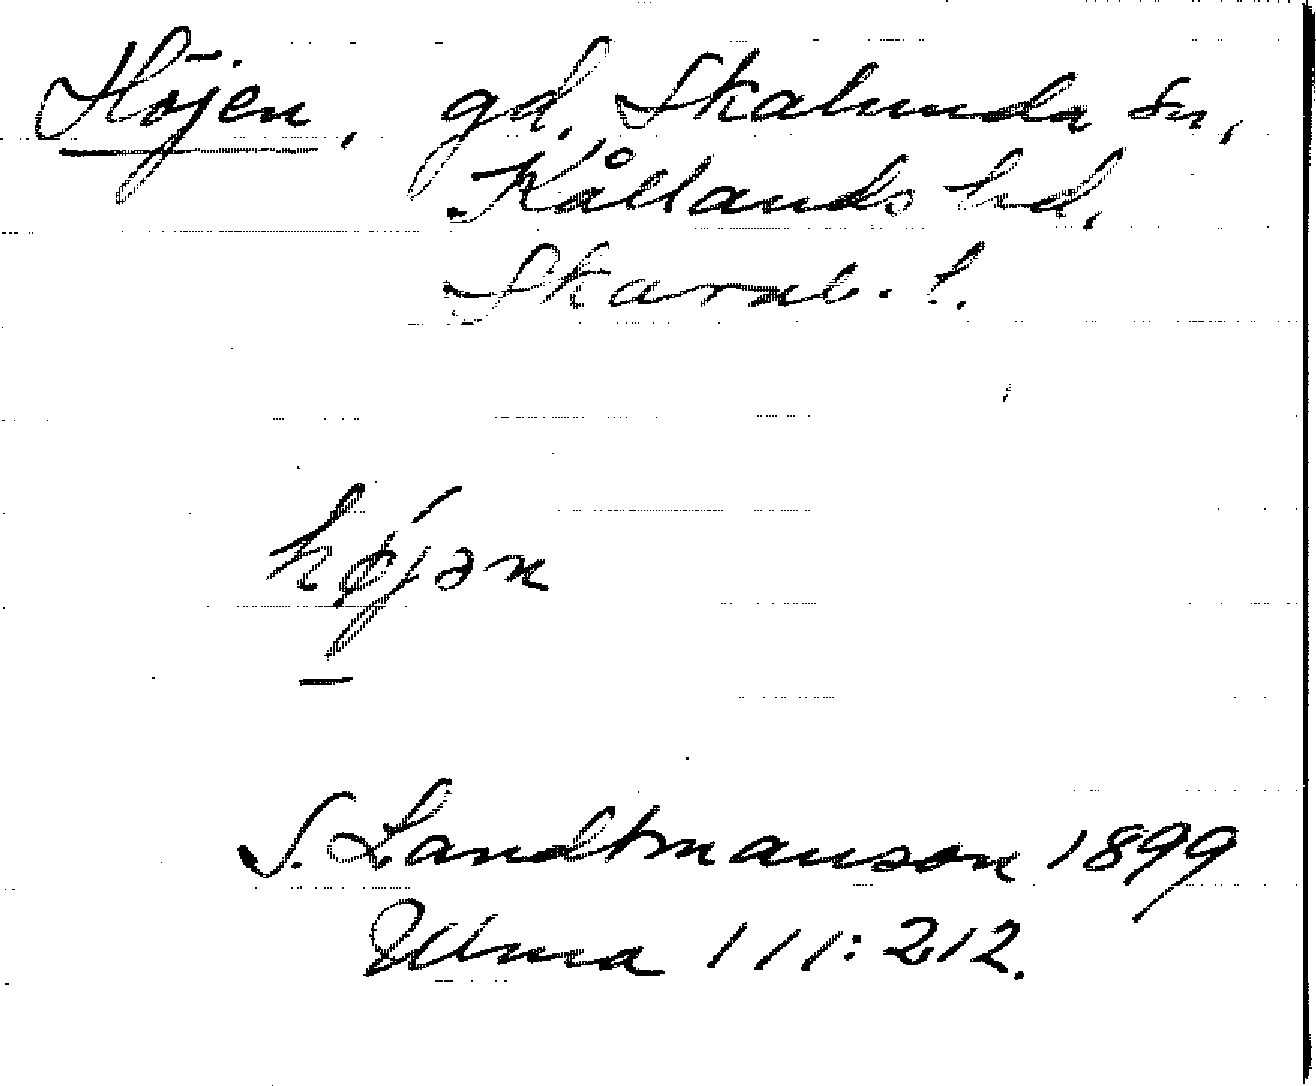 Höjen, gd, Skalunda sn,
Kållands hd,
Skarab. l.
højən
S. Landtmanson 1899
Ulma 111:212.